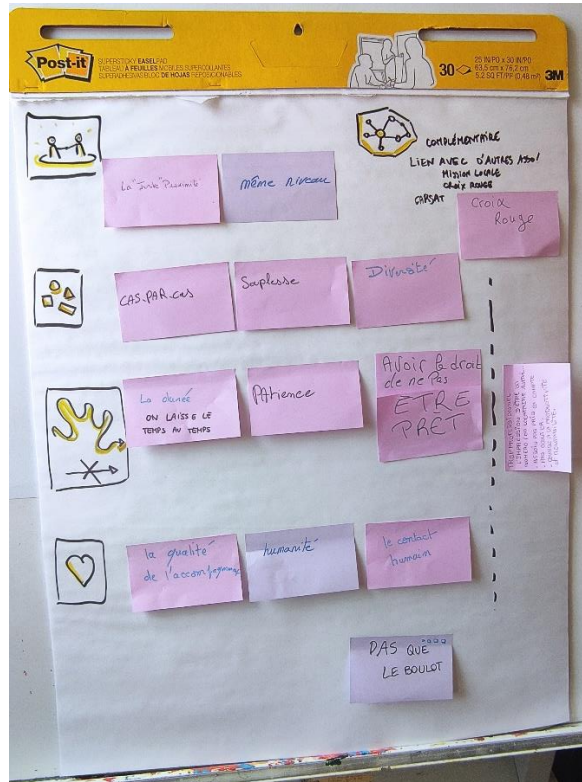 Post-it
SUPERSTICKY EASELPAD
TABLEAU À FEUILLES MOBILES SUPERCOLLANTES
SUPERADHESIVAS BLOC DE HOJAS REPOSICIONABLES
30
25 IN/PO x 30 IN/PO
63,5 cm x 76,2 cm
5.2 SQ FT/PI² (0,48 m²)
3M
COMPLÉMENTAIRE
LIEN AVEC D'AUTRES ASSO/
MISSION LOCALE
CROIX ROUGE
CARSAT
Croix
Rouge
La "Juste" Proximité
même niveau
CAS-PAR-Cas
Souplesse
Diversité
La durée
ON LAISSE LE
TEMPS AU TEMPS
PAtience
AVoir le droit
de ne Pas
ETRE
PRET
la qualité
de l'accompagnement
humanité
le contact
humain
PAS QUE
LE BOULOT